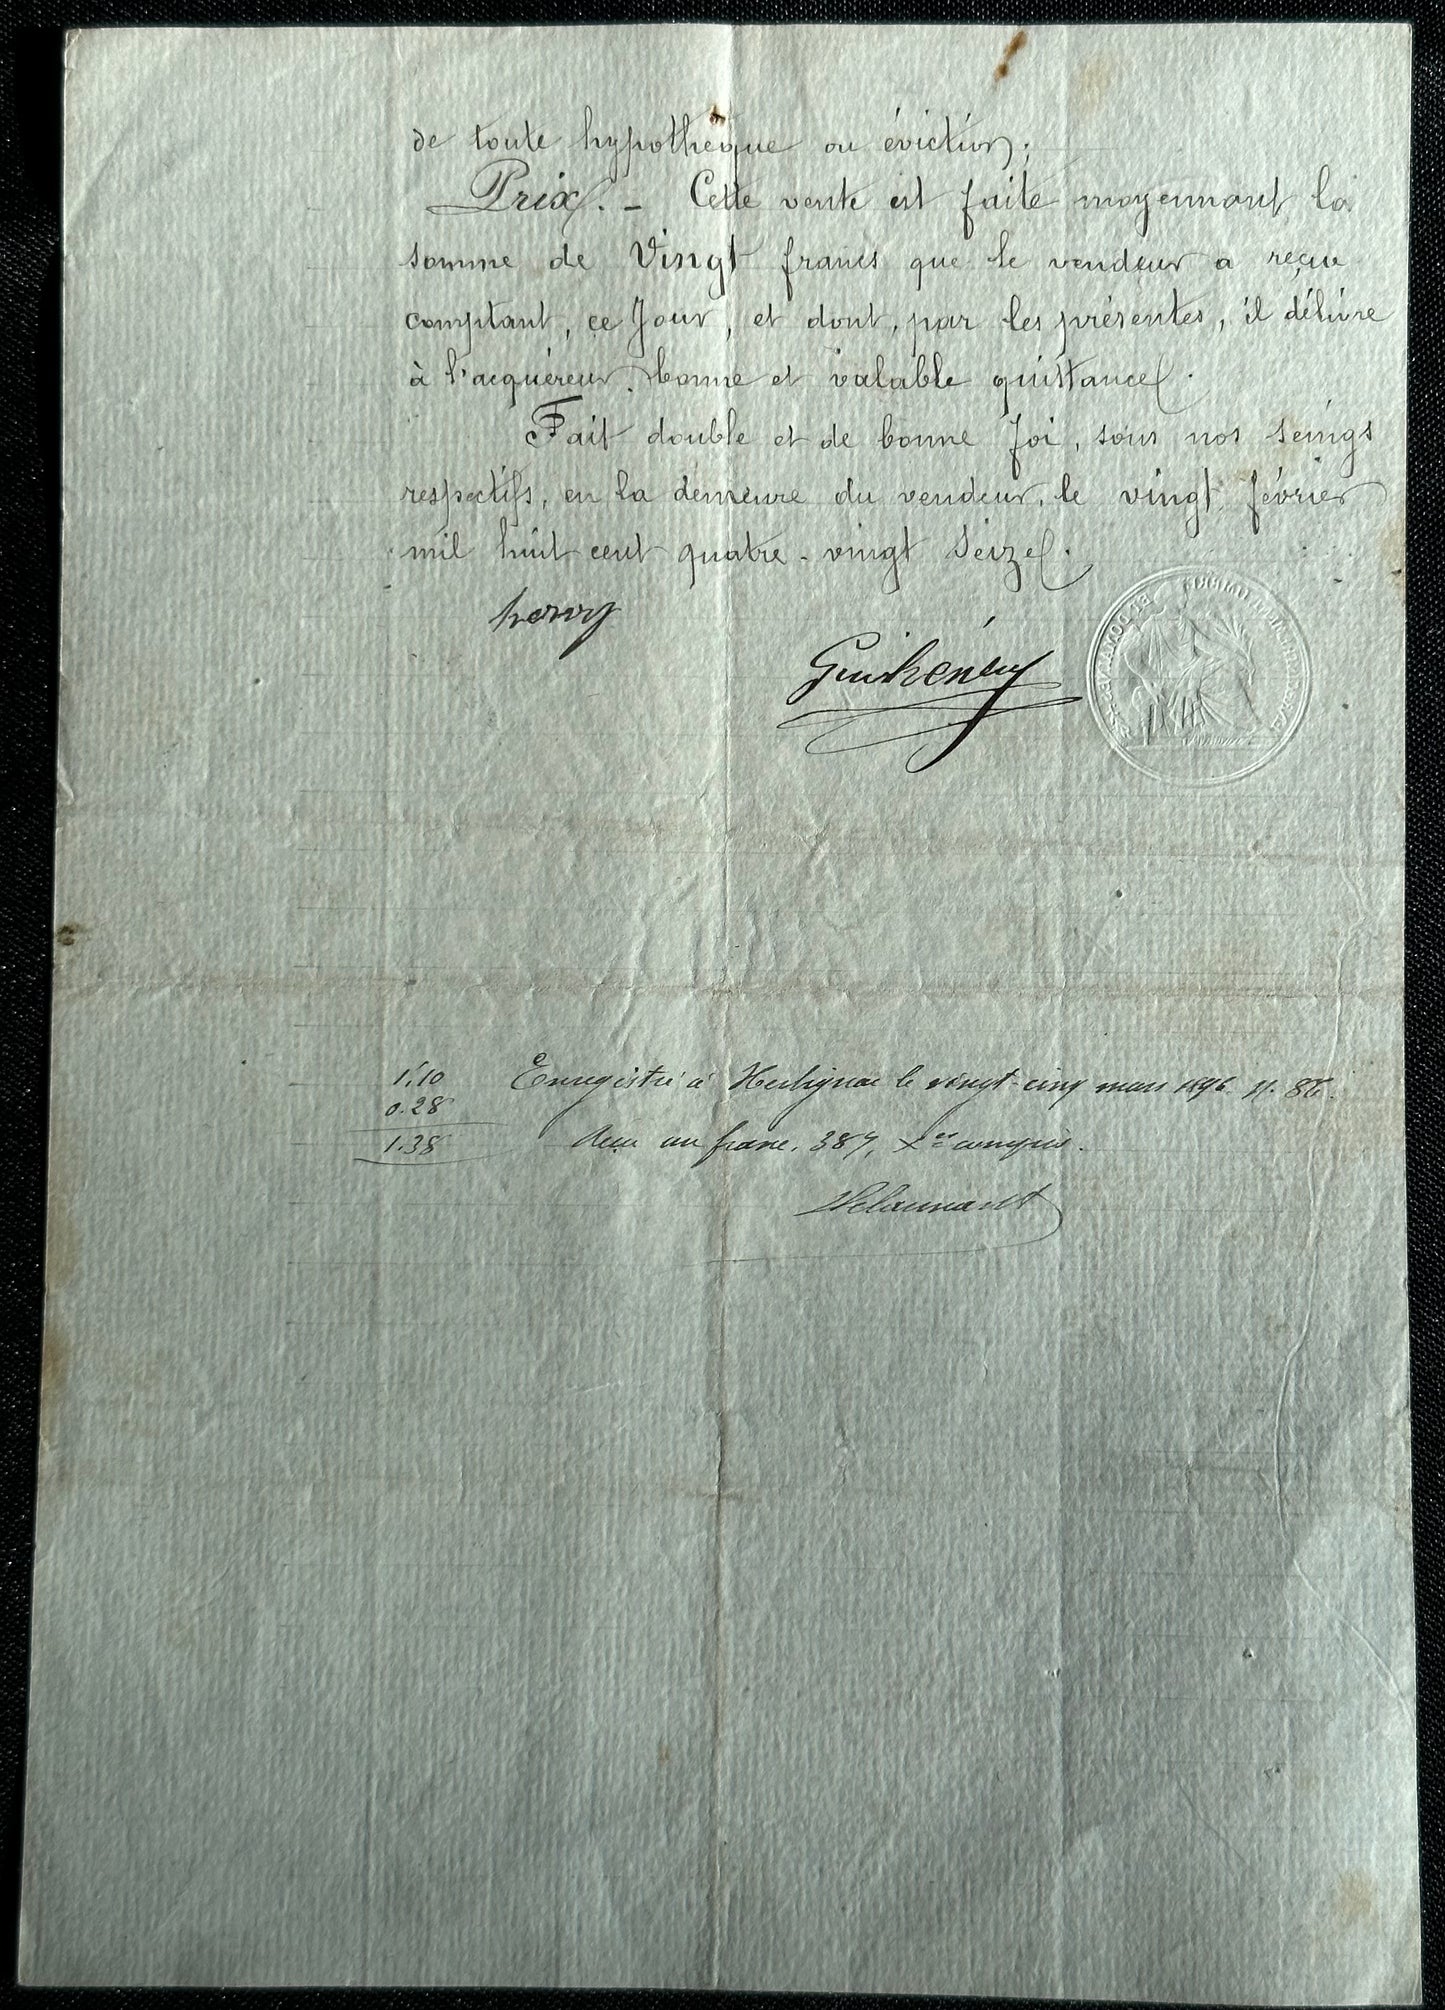 de toute hypothèque ou éviction;
Prix. - Cette vente est faite moyennant la
somme de Vingt francs que le vendeur a reçue
comptant, ce Jour, et dont, par les présentes, il délivre
à l'acquéreur, bonne et valable quittance.
Fait double et de bonne foi, sous nos seings
respectifs, en la demeure du vendeur, le vingt février
mil huit cent quatre-vingt seize.
hervy
1,10
0.28
1.38
Enregistré à Herbignac le vingt-cinq mars 1896.
Reçu un franc, 38 compris.